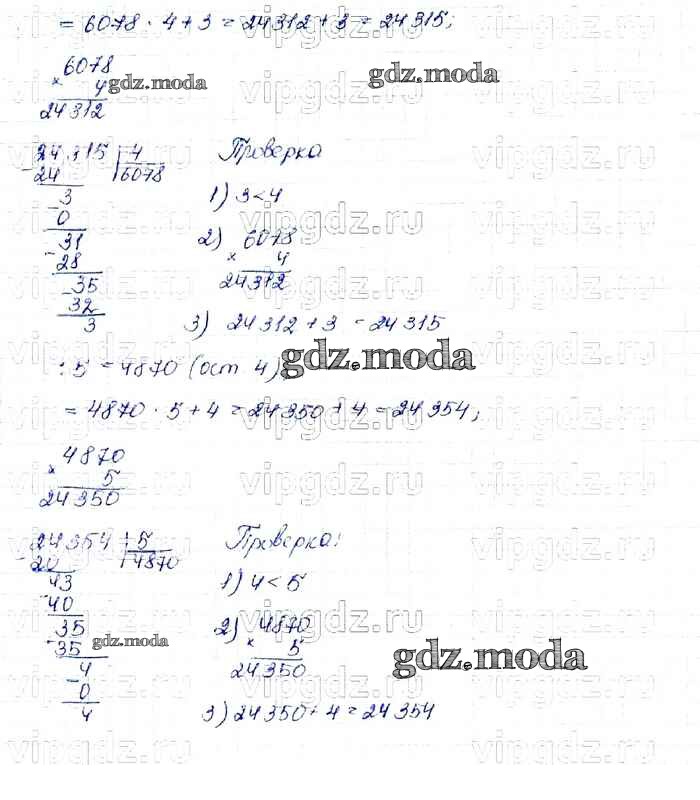 = 6078 · 4 + 3 = 24312 + 3 = 24315;
6078
× 4
24312
gdz.moda
gdz.moda
24315 | 4
- 24 | 6078
3
- 0
31
- 28
35
- 32
3
Проверка
1) 3 < 4
2) 6078
× 4
24312
3) 24312 + 3 = 24315
: 5 = 4870 (ост. 4)
gdz.moda
= 4870 · 5 + 4 = 24350 + 4 = 24354;
4870
× 5
24350
24354 | 5
- 20 | 4870
43
- 40
35
- 35
4
- 0
4
gdz.moda
Проверка:
1) 4 < 5
2) 4870
× 5
24350
gdz.moda
3) 24350 + 4 = 24354
vipgdz.ru